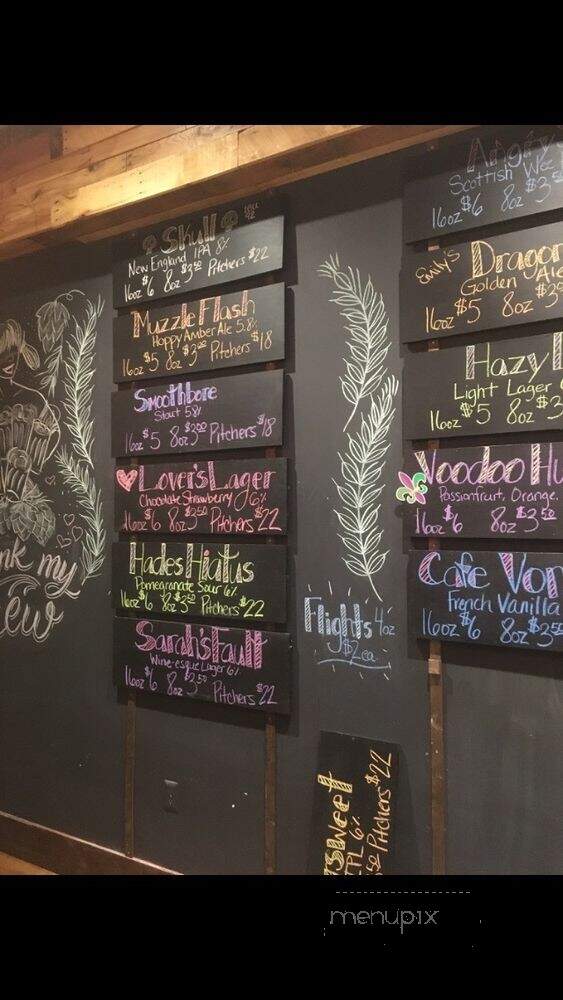 Skull
New England IPA 8%
16oz $6 8oz $3.50 Pitchers $22
Muzzle Flash
Hoppy Amber Ale 5.8%
16oz $5 8oz $3.00 Pitchers $18
Smoothbore
Stout 5%
16oz $5 8oz $3.00 Pitchers $18
Lover's Lager
Chocolate Strawberry 6%
16oz $6 8oz $3.50 Pitchers $22
Hades Hiatus
Pomegranate Sour 6%
16oz $6 8oz $3.50 Pitchers $22
Sarah's Fault
Wine-esque Lager 6%
16oz $6 8oz $3.50 Pitchers $22
nk my
ew
Flights 4oz
$2 ea
sweet
IPL 6%
Pitchers $22
Angry
Scottish Wee
16oz $6 8oz $3.5
Emily's
Dragon
Golden Ale
16oz $5 8oz $3
Hazy
Light Lager
16oz $5 8oz $3
Voodoo Hu
Passionfruit, Orange,
16oz $6 8oz $3.50
Cafe Von
French Vanilla
16oz $6 8oz $3.50
menupix